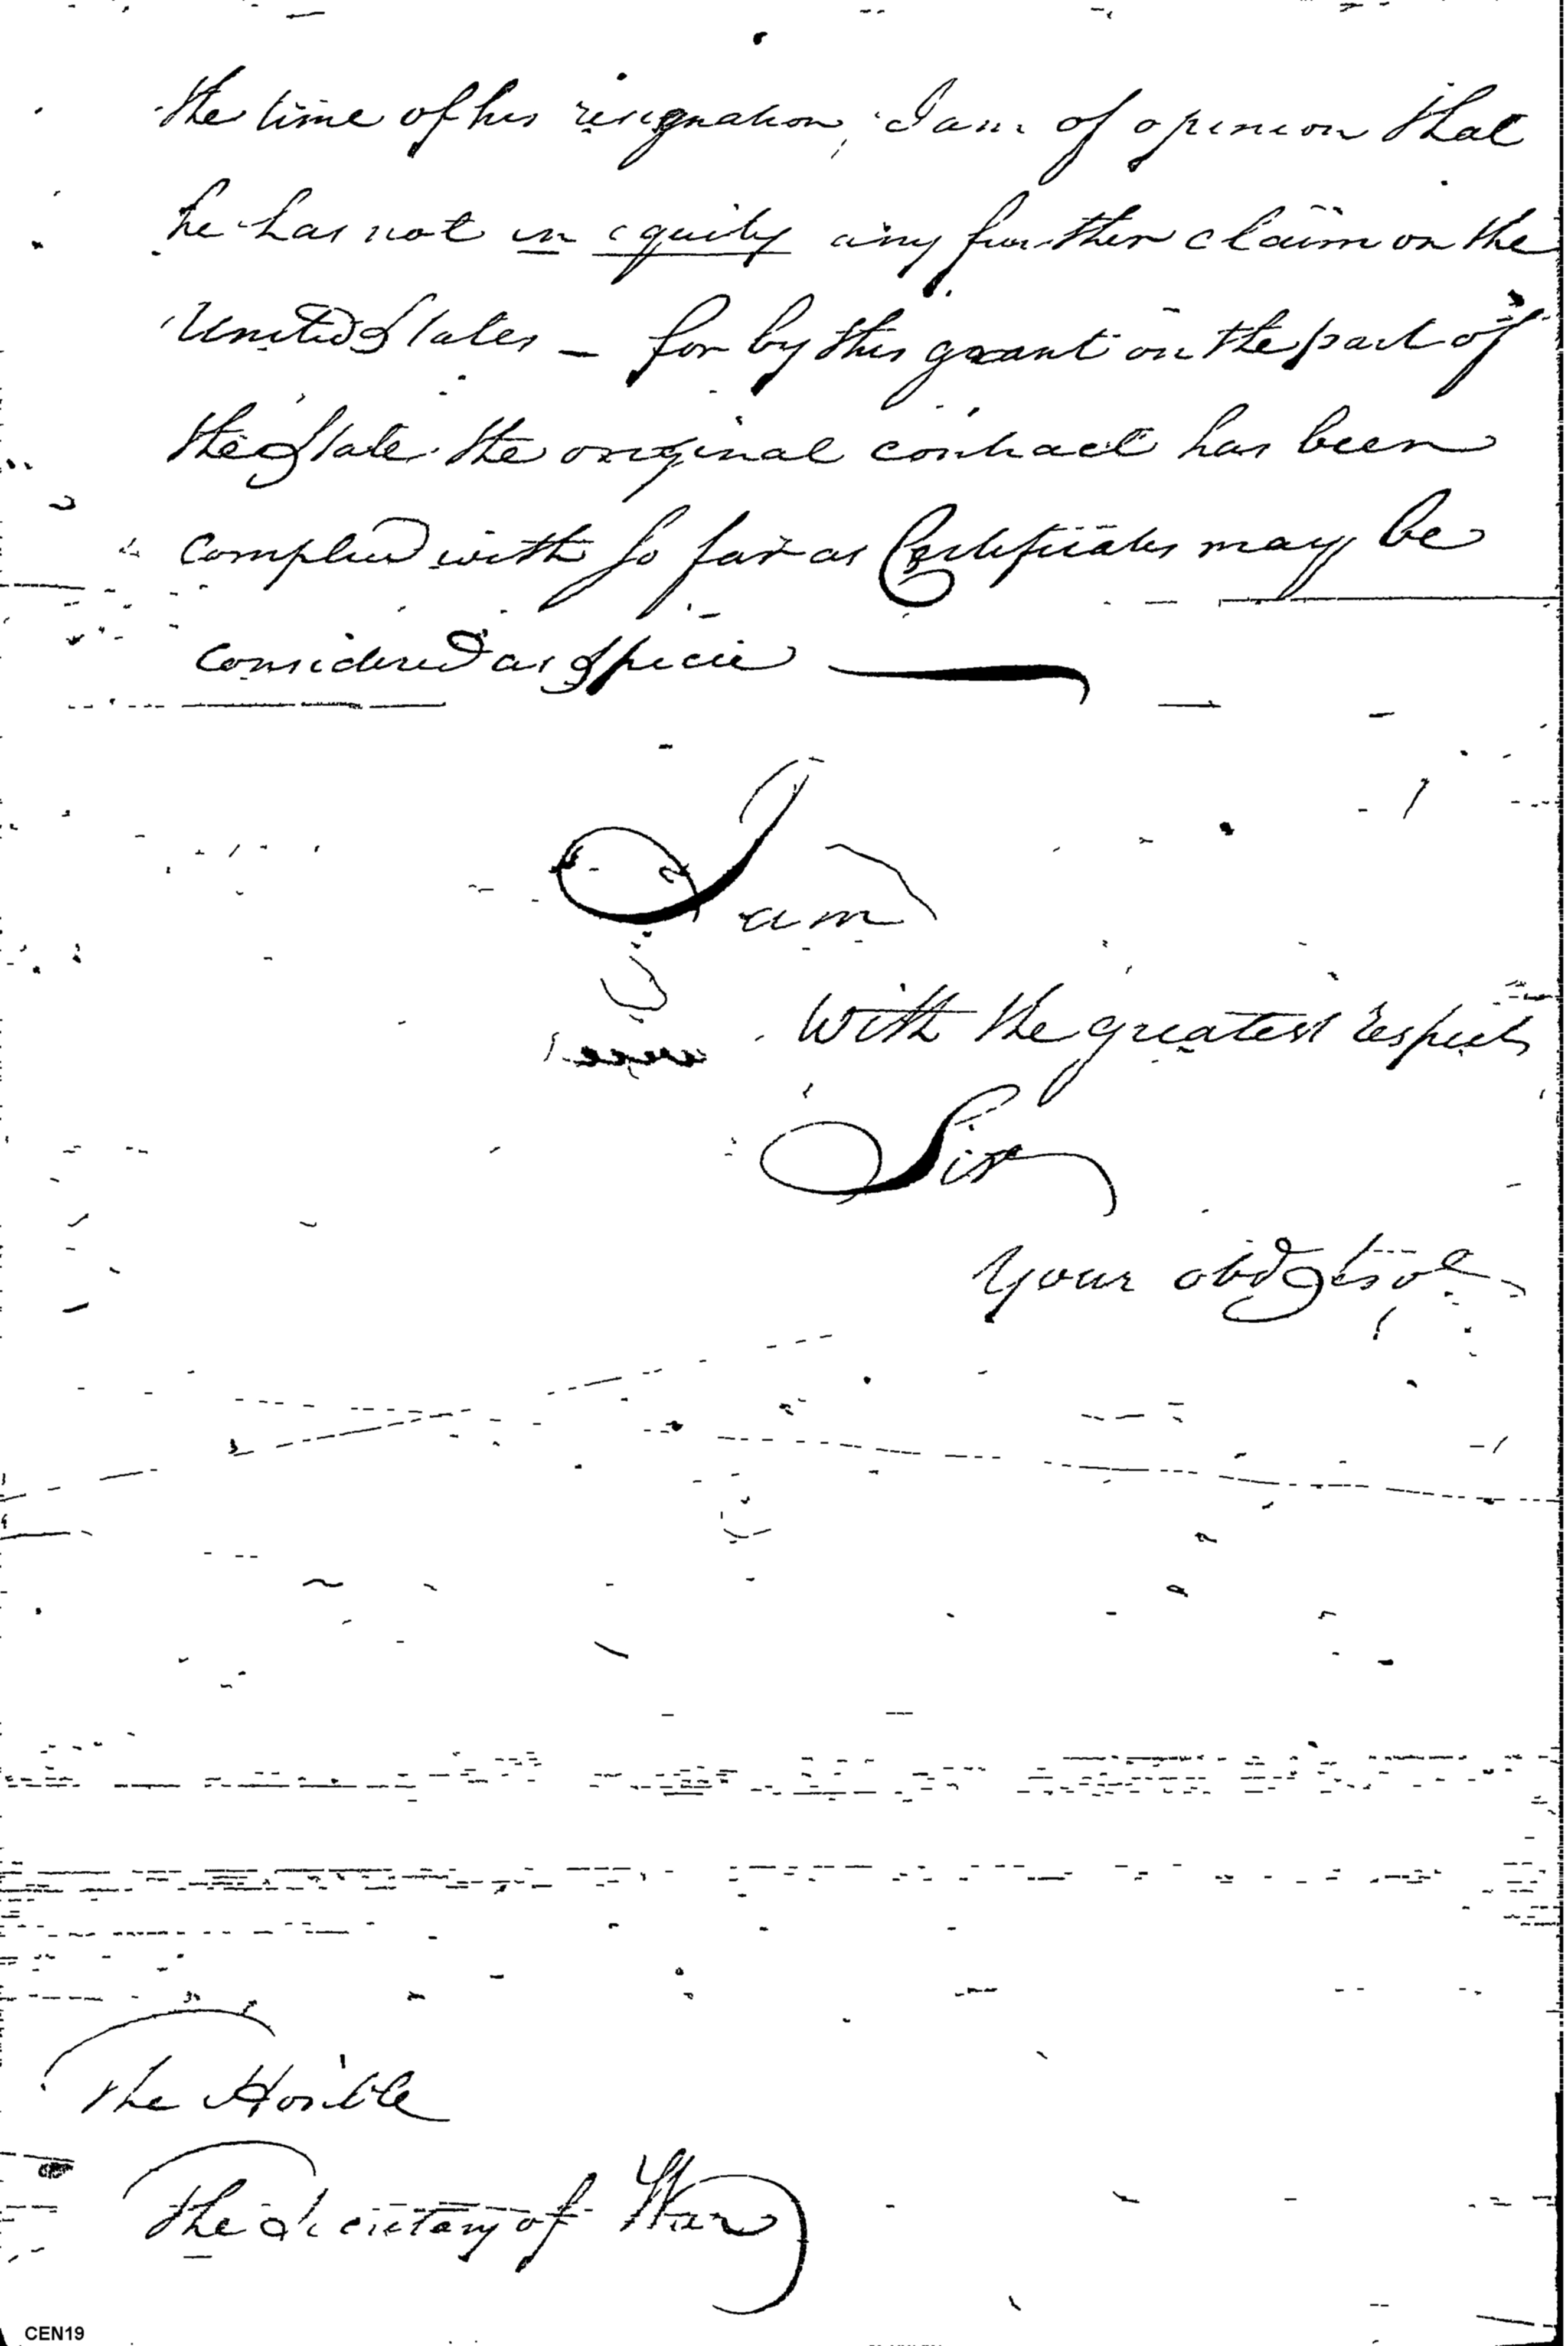 the time of his resignation, I am of opinion that
he has not in equity any further claim on the
United States – for by this grant on the part of
the State the original contract has been
complied with so far as Certificates may be
considered as specie
I am
with the greatest respect
Sir
Your obd
The Honble
The Secretary of War
CEN19